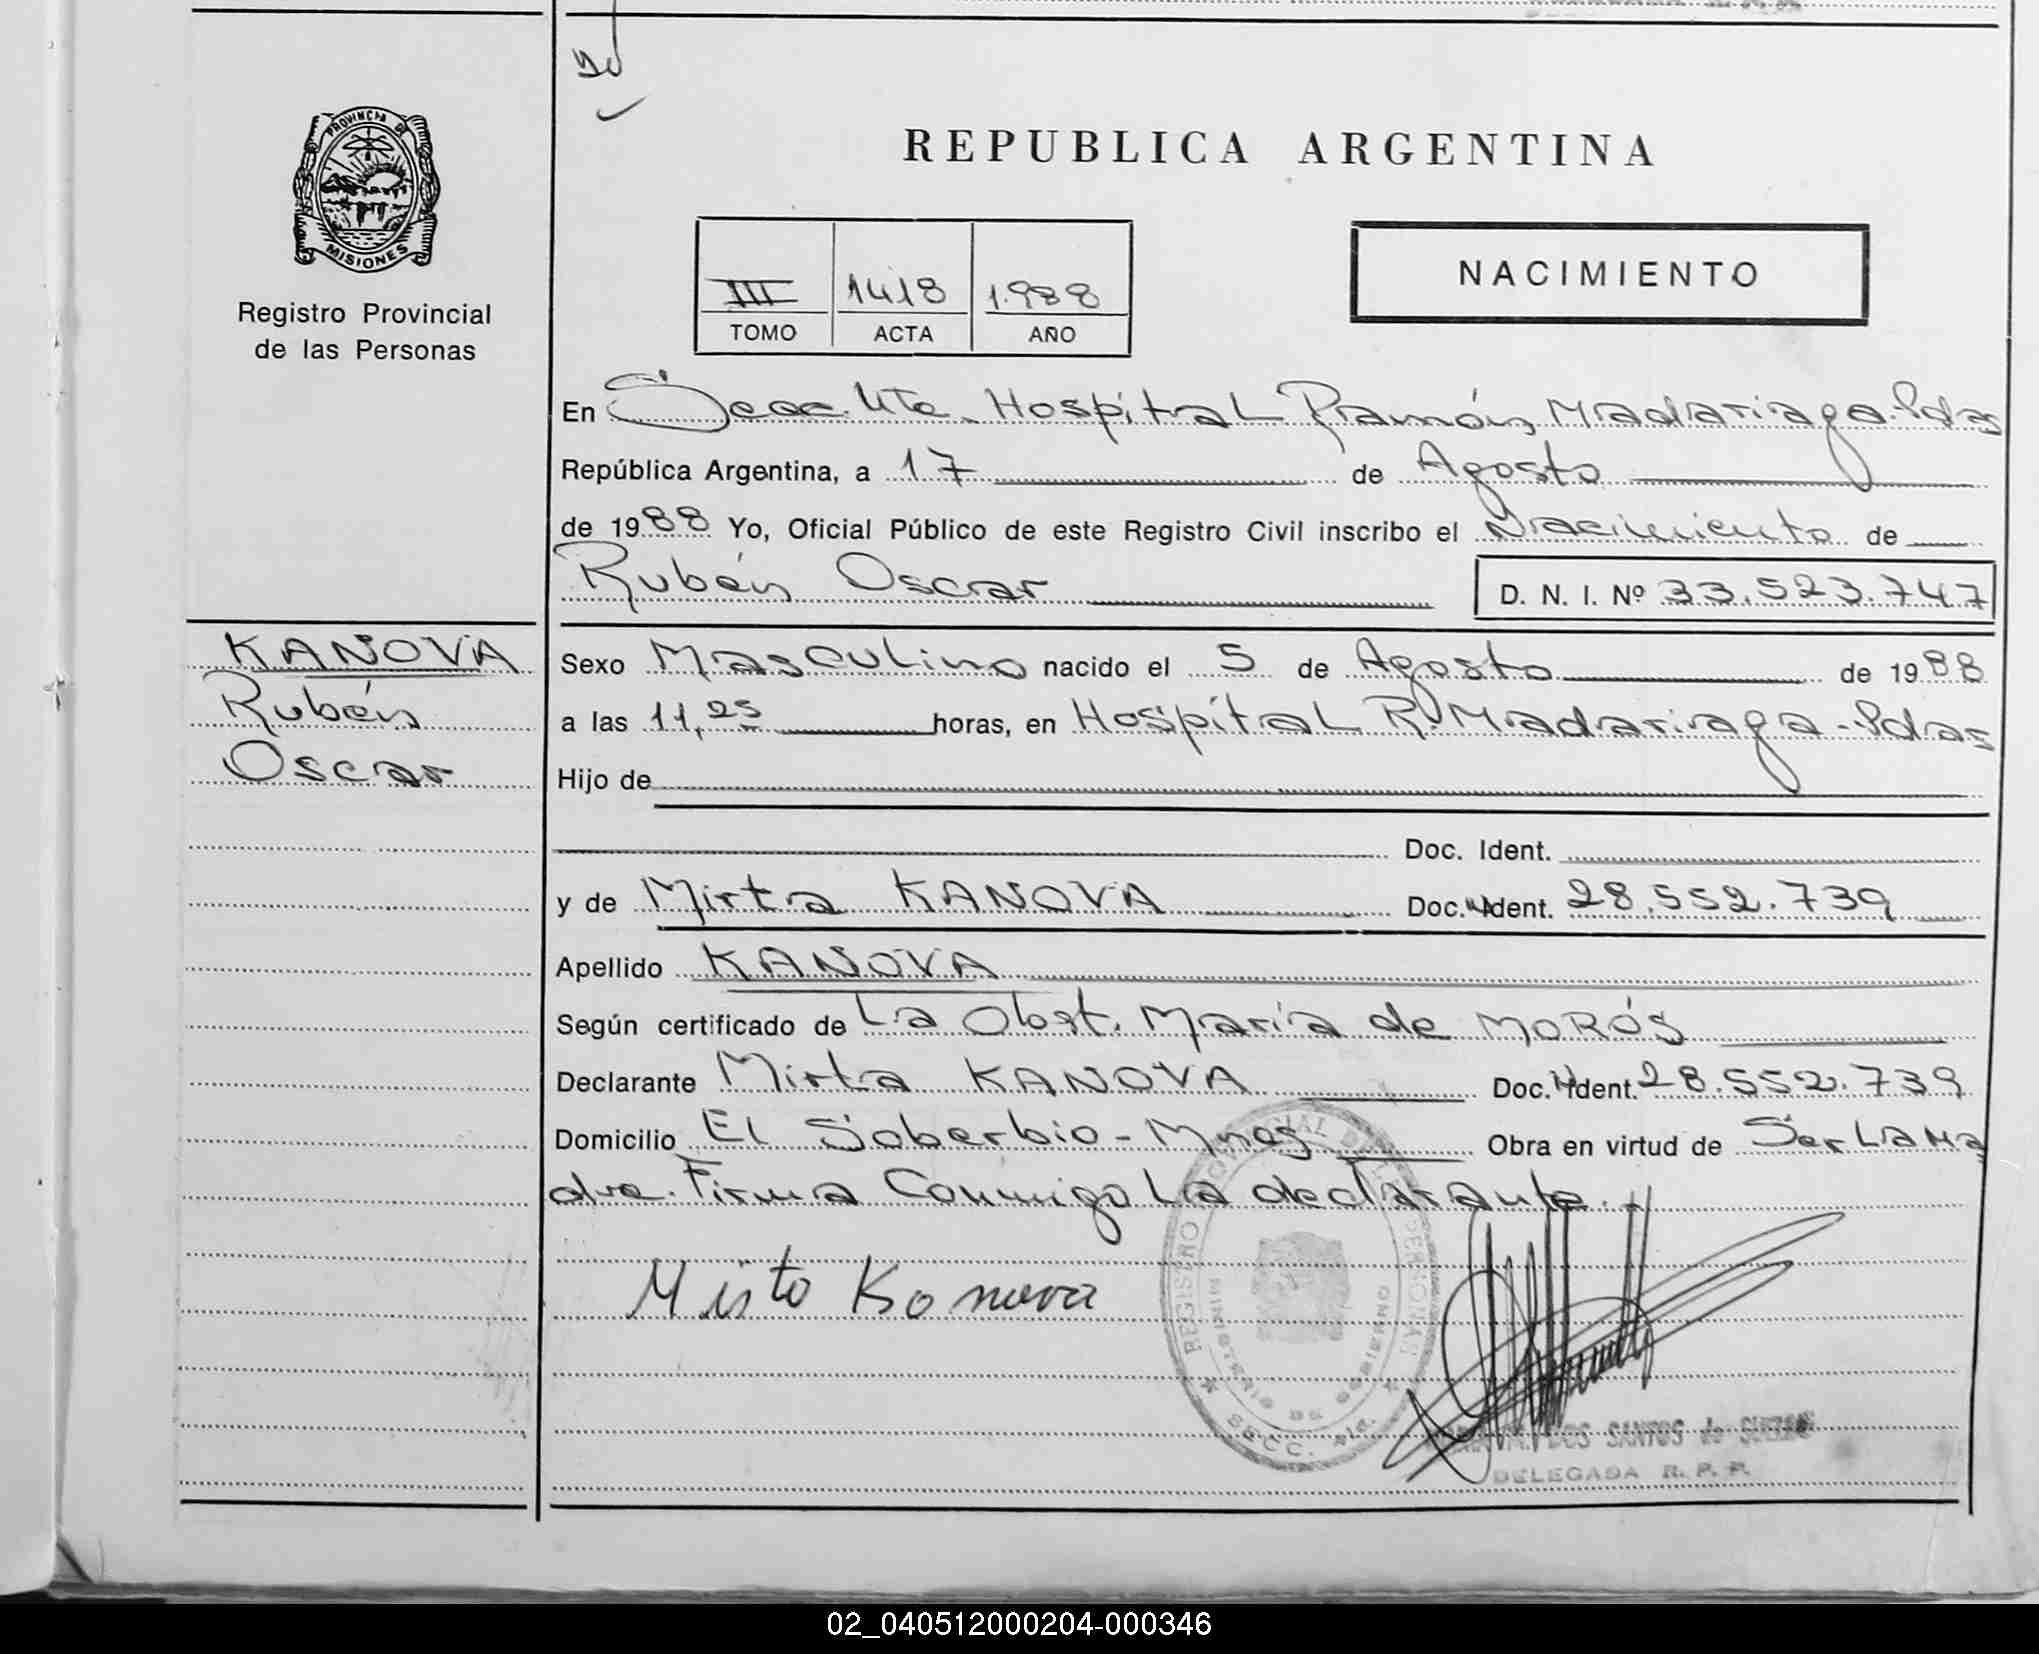 REPUBLICA ARGENTINA
PROVINCIA DE
MISIONES
Registro Provincial
de las Personas
III 1418 1.988
TOMO ACTA AÑO
NACIMIENTO
En Secc. Hospital Ramón Madariaga-Pdas
República Argentina, a 17 de Agosto
de 1988 Yo, Oficial Público de este Registro Civil inscribo el Nacimiento de
Rubén Oscar D. N. I. Nº 33.523.747
KANOVA
Rubén
Oscar
Sexo Masculino nacido el 5 de Agosto de 1988
a las 11,25 horas, en Hospital R. Madariaga-Pdas
Hijo de
Doc. Ident.
y de Mirta KANOVA Doc. Ident. 28.552.739
Apellido KANOVA
Según certificado de La Obst. María de MORÓS
Declarante Mirta KANOVA Doc. Ident. 28.552.739
Domicilio El Soberbio-Mnes Obra en virtud de Ser La Ma
dre. Firma Conmigo La declarante.
Mirta Kanova
REGISTRO PROVINCIAL DE LAS PERSONAS
MINISTERIO DE GOBIERNO
SECC.
DOS SANTOS de
DELEGADA R. P. P.
02_040512000204-000346